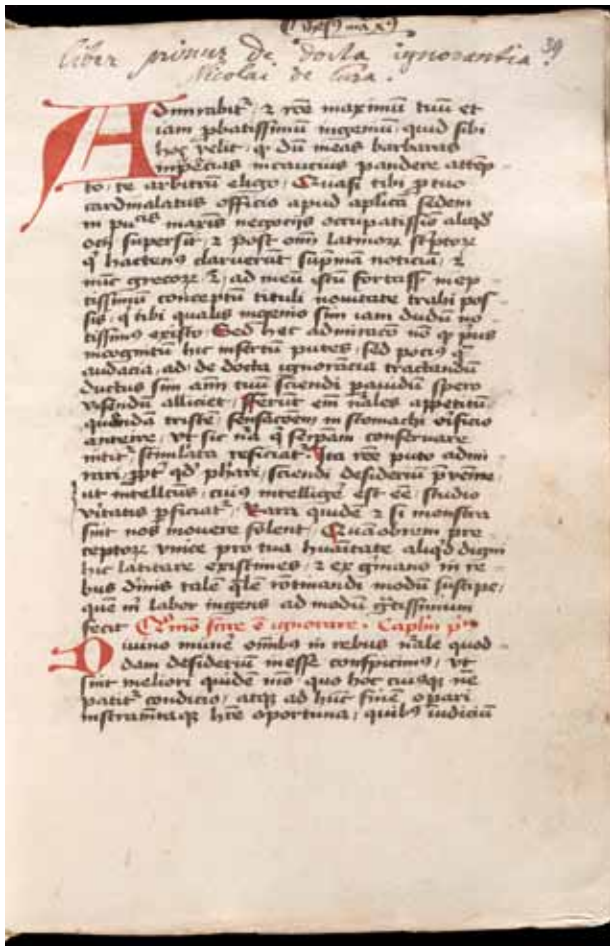 39
liber primus de docta ignorantia
Nicolai de Cusa.
Admirabit᷑ ⁊ rc̄e maximū tuū et
iam ꝓbatissimū ingeniū quid sibi
hoc velit ꝙ dū meas barbaras
inpc̄ias incauciꝰ pandere attēp
to / te arbitrū eligo / Quasi tibi ꝓ tuo
cardinalatus officio apud aplicā sedem
in pucis maxīs negocijs occupatissīo aliqͥd
ocij supersit / ⁊ post om̄ latinoꝝ sc̄ptoꝝ
q̄ hactenꝰ claruerūt supmā noticiā / ⁊
nūc grecoꝝ ec̄ / ad meū istū fortass̄ inep
tissimū conceptū tituli nouitate trahi pos
sis / q̄ tibi qualis ingenio sim iam dudū no
tissimꝰ existo / Sed hec admiracō nō ꝙ pͥus
incognitū hic insertū putes / sed pociꝰ q̄
audacia / ad de docta ignorācia tractandū
ductus sim aīm tuū sciendi pauidū spero
visendū alliciet / fferūt em̄ nāles appetitū
quēdā triste᷑ sensacōem in stomachi orificio
anteire / vt sic nā q̄ seip̄am conseruare
nitit᷑ / stimlata reficiat᷑ / Ita rc̄e puto admi
rari / ꝓpt᷑ qd̓ ph̄ari / sciendi desideriū p̄uenire
ut intellc̄us / cuiꝰ intellige᷑ est ee᷑ / studio
v̄itatis ꝑficiat᷑ / Rara quidē ⁊ si monstra
sint nos mouere solent / Quāobrem pre
ceptoꝝ vnice pro tua hūaītate aliqͥd digni
hic latitare existimes / ⁊ ex gͤmano in re
bus diuīis talē q̄lē rōcinandi modū suscipe /
quē m̄ labor ingens ad modū gͣtissimum
fecit Qūo scire ē ignorare . Caplm̄ pͥm
Diuino mune᷑ om̄ibꝫ in rebus nāle quod
dam desideriū inesse᷑ conspicimꝰ / vt
sint meliori quidē mō / quo hoc cuiusqꝫ nē
patit᷑ condicio / atqꝫ ad hūc finē oꝑari
instrum̄taqꝫ hr̄e oportuna / quibꝫ iudiciū